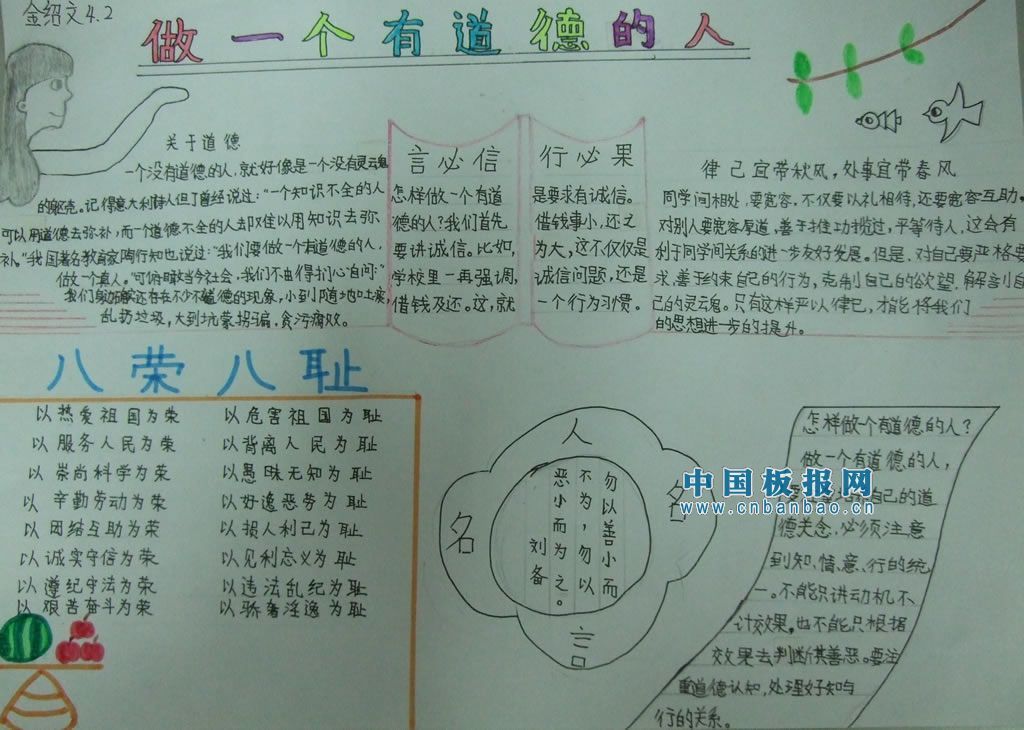 金绍文4.2
做一个有道德的人
关于道德
一个没有道德的人,就好像是一个没有灵魂
的躯壳。记得意大利诗人但丁曾经说过:“一个知识不全的人
可以用道德去弥补,而一个道德不全的人却难以用知识去弥
补。”我国著名教育家陶行知也说过:“我们要做一个有道德的人,
做一个真人。”可俯瞰当今社会,我们不由得扪心自问:
我们身边还存在不少不道德的现象,小到随地吐痰,
乱扔垃圾,大到坑蒙拐骗,贪污腐败。
言必信
怎样做一个有道
德的人?我们首先
要讲诚信。比如,
学校里一再强调,
借钱及还。这,就
行必果
是要求有诚信。
借钱事小,还之
为大,这不仅仅是
诚信问题,还是
一个行为习惯。
律己宜带秋风,处事宜带春风
同学间相处,要宽容,不仅要以礼相待,还要宽容互助。
对别人要宽容厚道,善于推功揽过,平等待人,这会有
利于同学间关系的进一步友好发展。但是,对自己要严格要
求,善于约束自己的行为,克制自己的欲望,解剖自
己的灵云魂。只有这样严以律已,才能将我们
的思想进一步的提升。
八荣八耻
以热爱祖国为荣 以危害祖国为耻
以服务人民为荣 以背离人民为耻
以崇尚科学为荣 以愚昧无知为耻
以辛勤劳动为荣 以好逸恶劳为耻
以团结互助为荣 以损人利己为耻
以诚实守信为荣 以见利忘义为耻
以遵纪守法为荣 以违法乱纪为耻
以艰苦奋斗为荣 以骄奢淫逸为耻
名人名言
勿以善小而
不为,勿以
恶小而为之。
刘备
怎样做一个有道德的人?
做一个有道德的人,
自己的道
德关念,必须注意
到知、情、意、行的统
一。不能只讲动机不
计效果,也不能只根据
效果去判断其善恶。要注
重道德认知,处理好知与
行的关系。
中国板报网
www.cnbanbao.cn